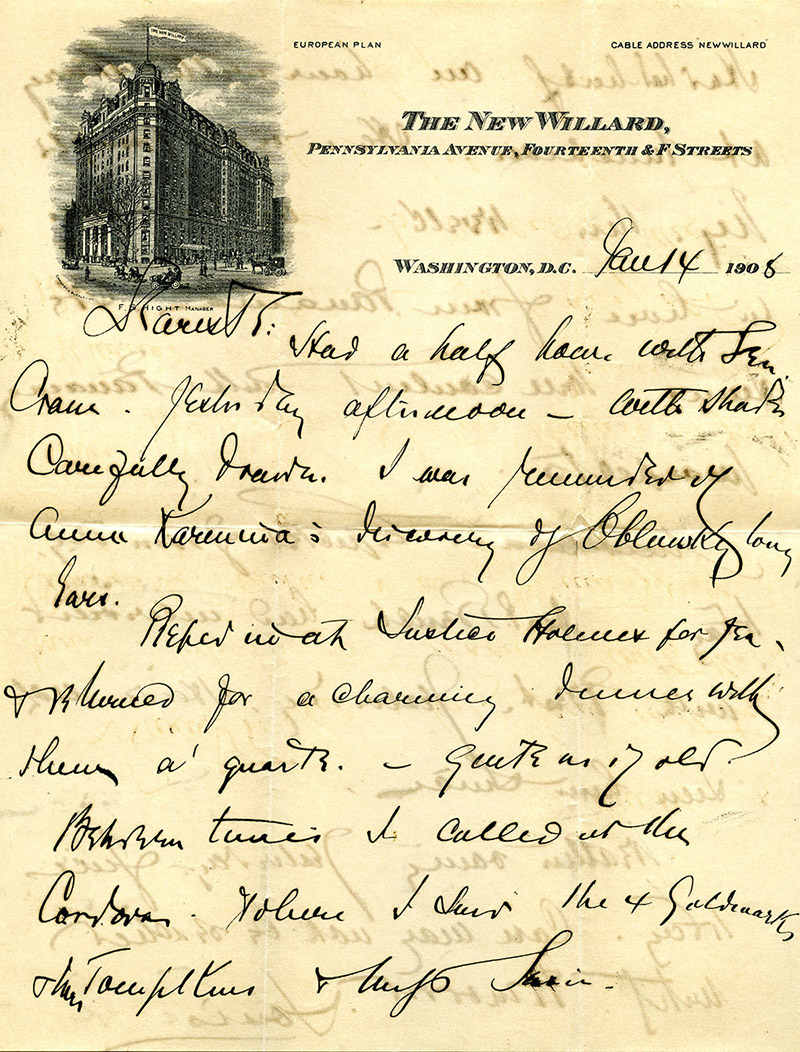 THE NEW WILLARD
EUROPEAN PLAN
CABLE ADDRESS "NEWWILLARD"
THE NEW WILLARD,
PENNSYLVANIA AVENUE, FOURTEENTH & F STREETS
WASHINGTON, D.C. Jan 14 1908
F. S. HIGHT MANAGER
Dearest:
Had a half hour with Sen.
Crane. Yesterday afternoon – with shades
Carefully drawn. I was reminded of
Anna Karenina's discovery of Oblonsky long
Ears.
in at Justice Holmes for tea,
& returned for a charming dinner with
them a' quatre. – Quite as of old.
Between times I called at the
Cordova. Where I saw the 4 Goldmarks
& Mrs Tompkins & Miss